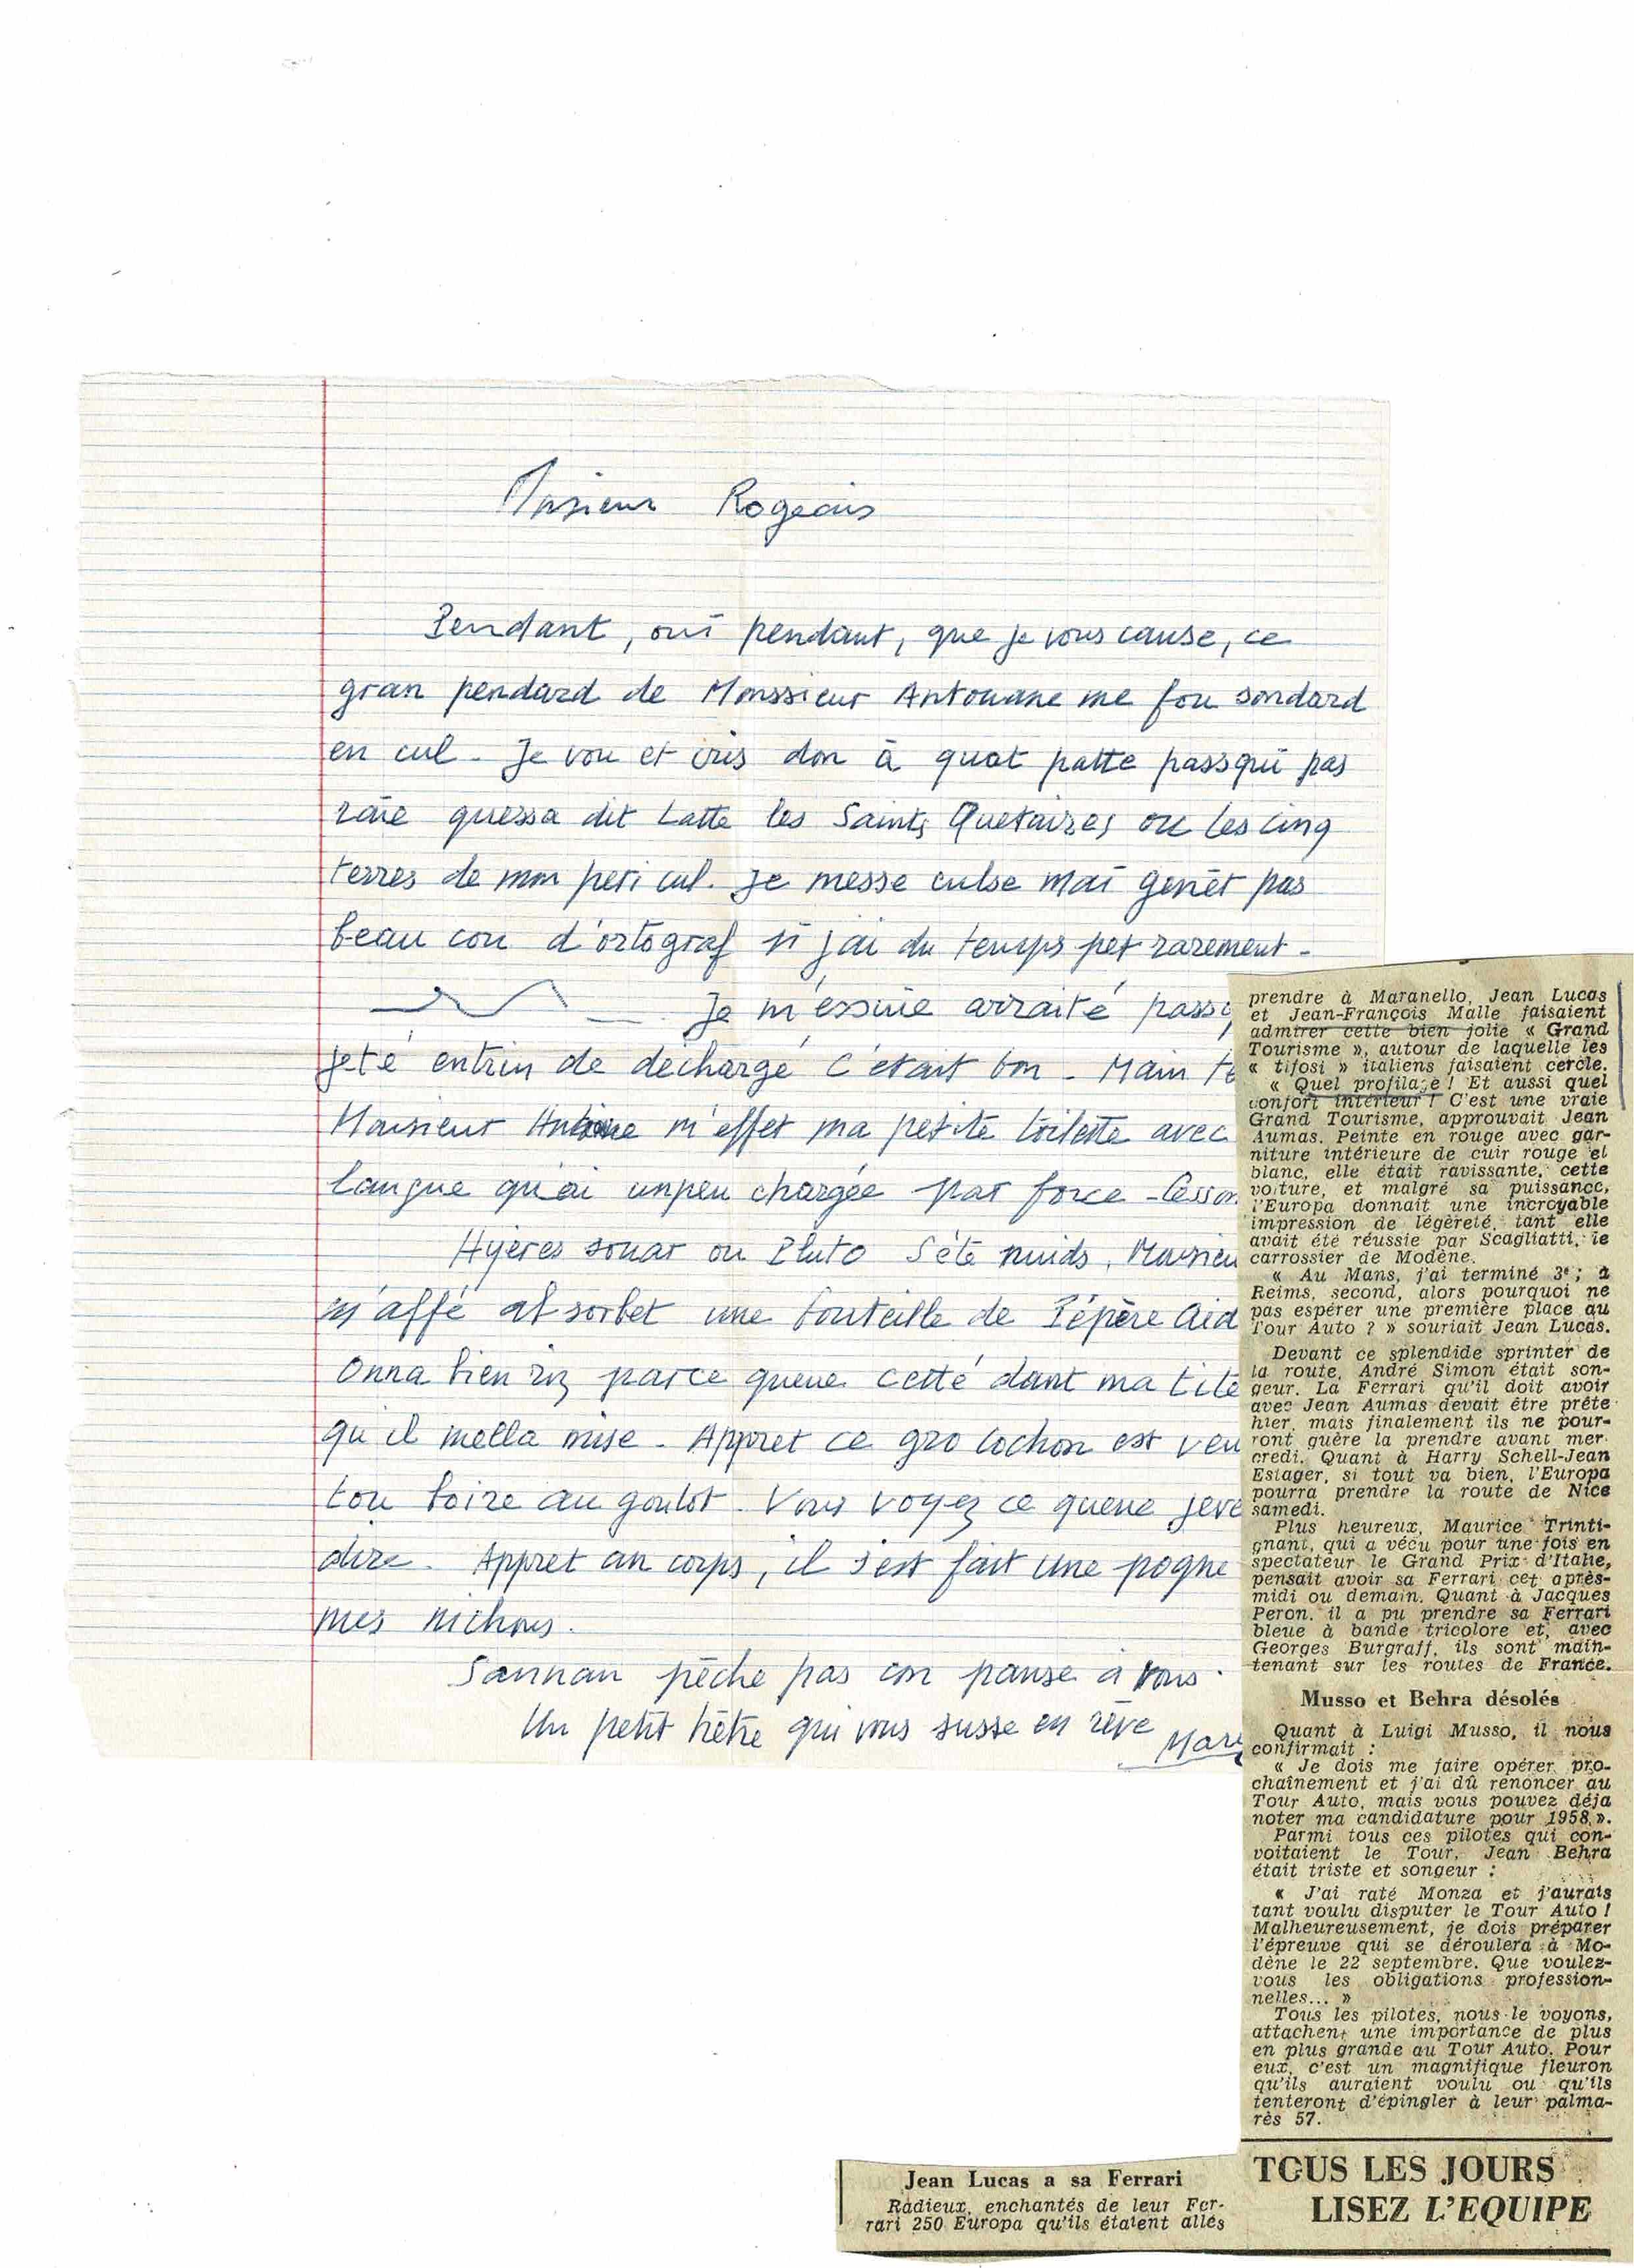 Monsieur Rogeais
Pendant, oui pendant, que je vous cause, ce
gran pendard de Monssieur Antouane me fou sondard
en cul - Je vou et cris don à quat patte passqui pas
raie quessa dit Latte les Saints Quetaires ou les cinq
terres de mon peti cul. Je messe culse mai genèt pas
beau cou d'ortograf si j'ai du temps pet rarement -
Je m'essuie arraité passq
jeté entrin de déchargé c'était bon - Main te
Monsieur Antoine m'effet ma petite toilette avec
langue qu'ai unpeu chargée par force -
Hyères souar ou Pluto S'été nuids, Monsieu
m'affé absorbet une bouteille de Pépère Aid
Onna bien riz parce queue cetté dant ma tite
qu'il mella mise - Appret ce gro cochon est veu
tou boire au goulot. Vous voyez ce queue jeve
dire. Appret an corps, il s'est fait une pogne
mes nichons.
Sannan pèche pas on panse à vous.
Un petit hètre qui vous susse en rêve
Mary
prendre à Maranello, Jean Lucas
et Jean-François Malle faisaient
admirer cette bien jolie « Grand
Tourisme », autour de laquelle les
« tifosi » italiens faisaient cercle.
« Quel profilage ! Et aussi quel
confort intérieur ! C'est une vraie
Grand Tourisme, approuvait Jean
Aumas. Peinte en rouge avec gar-
niture intérieure de cuir rouge et
blanc, elle était ravissante, cette
voiture, et malgré sa puissance,
l'Europa donnait une incroyable
impression de légèreté, tant elle
avait été réussie par Scagliatti, le
carrossier de Modène.
« Au Mans, j'ai terminé 3e ; à
Reims, second, alors pourquoi ne
pas espérer une première place au
Tour Auto ? » souriait Jean Lucas.
Devant ce splendide sprinter de
la route, André Simon était son-
geur. La Ferrari qu'il doit avoir
avec Jean Aumas devait être prête
hier, mais finalement ils ne pour-
ront guère la prendre avant mer-
credi. Quant à Harry Schell-Jean
Estager, si tout va bien, l'Europa
pourra prendre la route de Nice
samedi.
Plus heureux, Maurice Trinti-
gnant, qui a vécu pour une fois en
spectateur le Grand Prix d'Italie,
pensait avoir sa Ferrari cet après-
midi ou demain. Quant à Jacques
Peron, il a pu prendre sa Ferrari
bleue à bande tricolore et, avec
Georges Burgraff, ils sont main-
tenant sur les routes de France.
Musso et Behra désolés
Quant à Luigi Musso, il nous
confirmait :
« Je dois me faire opérer pro-
chaînement et j'ai dû renoncer au
Tour Auto, mais vous pouvez déja
noter ma candidature pour 1958. ».
Parmi tous ces pilotes qui con-
voitaient le Tour, Jean Behra
était triste et songeur :
« J'ai raté Monza et j'aurais
tant voulu disputer le Tour Auto !
Malheureusement, je dois préparer
l'épreuve qui se déroulera à Mo-
dène le 22 septembre. Que voulez-
vous les obligations profession-
nelles... »
Tous les pilotes, nous le voyons,
attachent une importance de plus
en plus grande au Tour Auto. Pour
eux, c'est un magnifique fleuron
qu'ils auraient voulu ou qu'ils
tenteront d'épingler à leur palma-
rès 57.
TOUS LES JOURS
LISEZ L'EQUIPE
Jean Lucas a sa Ferrari
Radieux, enchantés de leur Fer-
rari 250 Europa qu'ils étaient allés